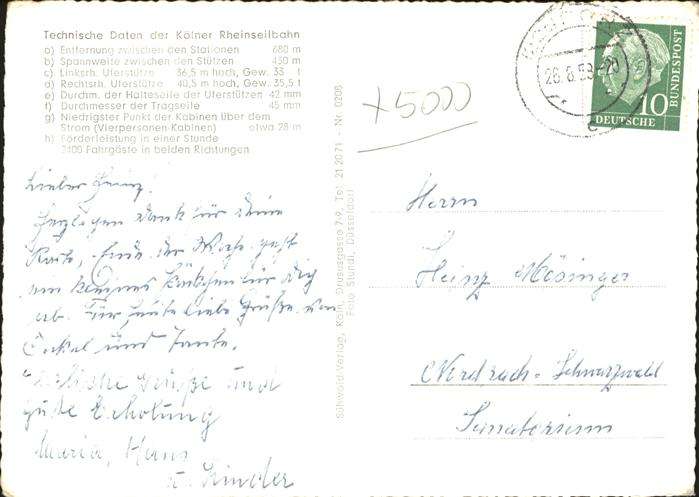 Technische Daten der Kölner Rheinseilbahn
a) Entfernung zwischen den Stationen 680 m
b) Spannweite zwischen den Stützen 480 m
c) Linksrh. Uferstütze 36,5 m hoch, Gew. 33 t
d) Rechtsrh. Uferstütze 40,5 m hoch, Gew. 35,5 t
e) Durchm. der Halteseile der Uferstützen 42 mm
f) Durchmesser der Tragseile 45 mm
g) Niedrigster Punkt der Kabinen über dem
Strom (Vierpersonen-Kabinen) etwa 28 m
h) Förderleistung in einer Stunde
2400 Fahrgäste in beiden Richtungen
Lieber Heinz!
Herzlichen Dank für deine
Karte, Ende der Woche geht
ein kleines Päckchen für Dich
ab. Für heute liebe Grüße von
Onkel und Tante.
Herzliche Grüße und
gute Erholung
Maria, Hans
u. Kinder
Verlag, Köln, Drususgasse 7-9, Tel. 21 20 71 - Nr. 0206
Foto Stundl, Düsseldorf
+5000
26.6.59-20
c
10
DEUTSCHE
BUNDESPOST
Herrn
Heinz Mösinger
Nordrach-Schwarzwald
Sanatorium